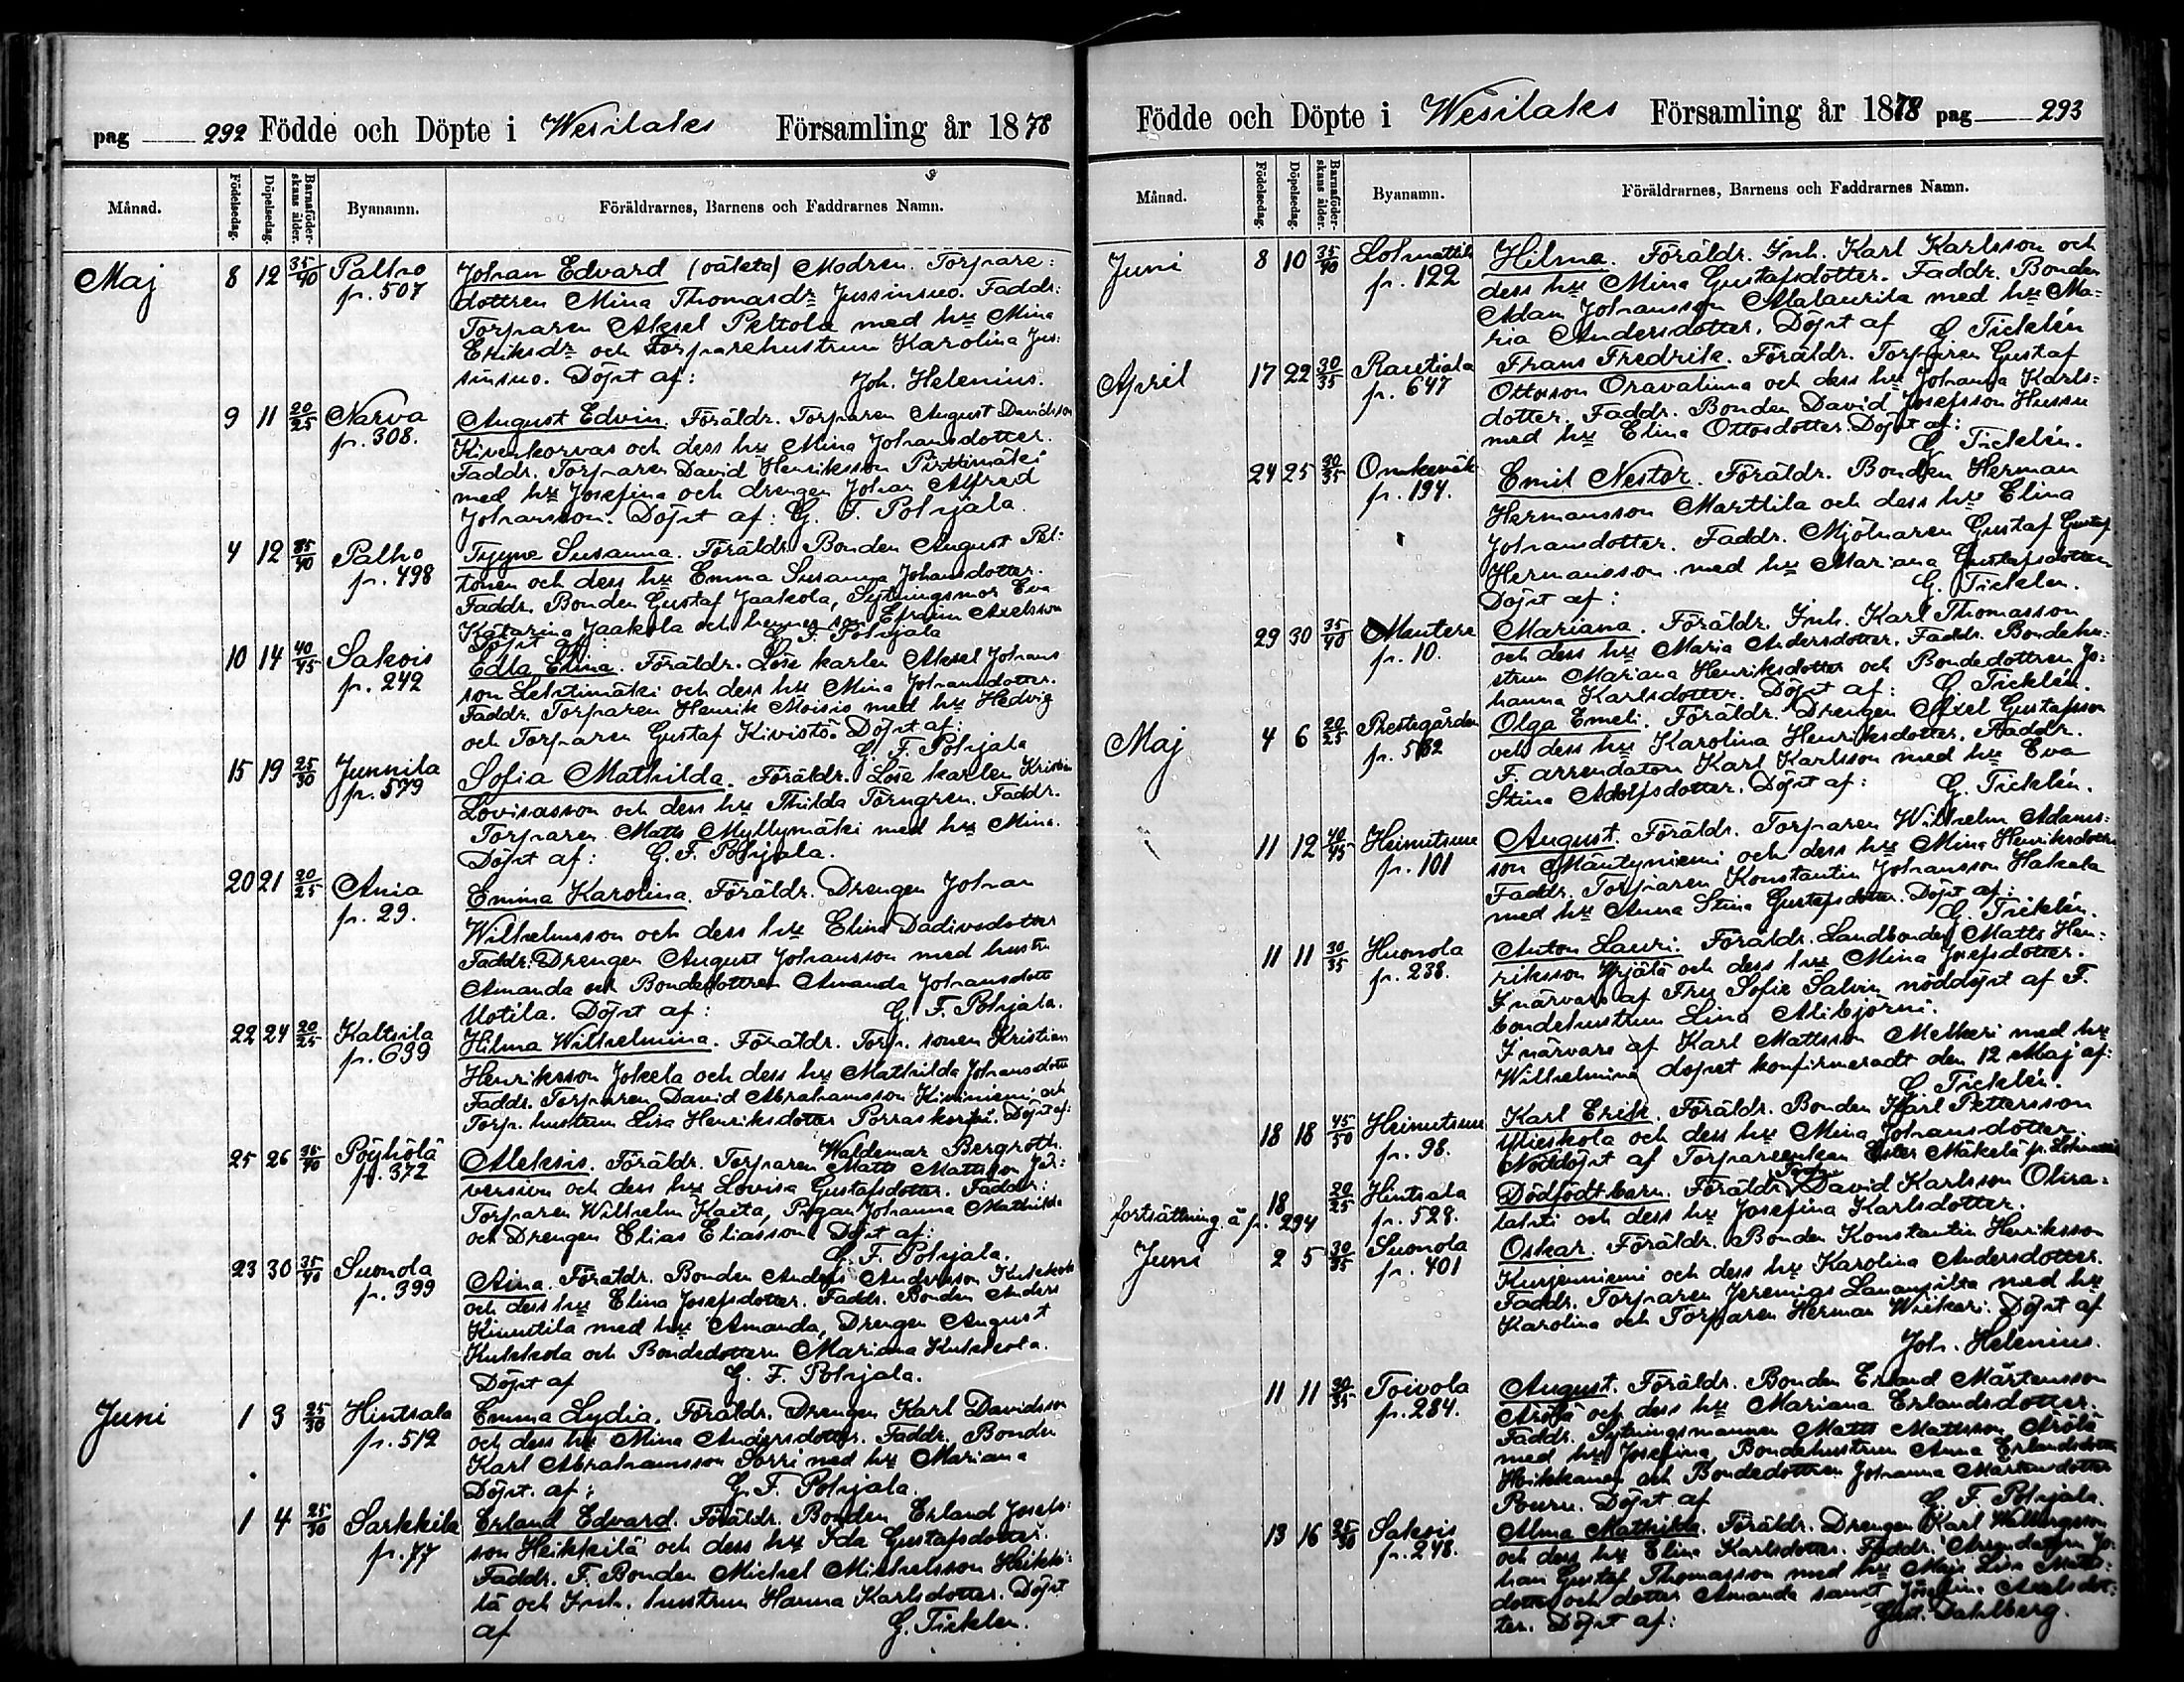 pag 292 Födde och Döpte i Wesilaks Församling år 1878
Månad. Födelsedag. Döpelsedag. Barnaföderskans ålder. Bynamn. Föräldrarnes, Barnens och Faddrarnes Namn.
Maj 8 12 35/40 Palho Johan Edvard (oäkta) Modren. Torpare:
p. 507 dottren Mina Thomasdr Jussinsuo. Faddr:
Torparen Aksel Peltola med hu Mina
Eriksdr och Torparehustrun Karolina Jus:
sinsuo. Döpt af: Joh. Helenius.
9 11 20/25 Narva August Edvin. Föräldr. Torparen August Davidsson
p. 308. Kivenkorvas och dess hu Mina Johansdotter.
Faddr. Torparen David Henriksson Pirttimäki
med hu Josefina och drengen Johan Alfred
Johansson. Döpt af: G. F. Pohjala.
4 12 35/40 Palho Tyyne Susanna. Föräldr. Bonden August Pel:
p. 498 tonen och dess hu Emma Susanna Johansdotter.
Faddr. Bonden Gustaf Jaakola, Sytningsmor Eva
Katarina Jaakola och hennes son Efraim Axelsson
Döpt af: G. F. Pohjala
10 14 40/45 Sakois Edla Elina. Föräldr. Löse karlen Aksel Johans
p. 242 son Lehtimäki och dess hu Mina Johansdotter.
Faddr. Torparen Henrik Moisio med hu Hedvig
och Torparen Gustaf Kivistö. Döpt af:
G. F. Pohjala
15 19 25/30 Junnila Sofia Mathilda. Föräldr. Löse karlen Kristian
p. 579 Lovisasson och dess hu Thilda Törngren. Faddr.
Torparen Matts Myllymäki med hu Mina.
Döpt af: G. F. Pohjala.
20 21 20/25 Ania Emma Karolina. Föräldr. Drengen Johan
p. 29. Wilhelmsson och dess hu Elina Dadivsdotter
Faddr: Drengen August Johansson med hustru
Amanda och Bondedottren Amanda Johansdotter
Uotila. Döpt af: G. F. Pohjala.
22 24 20/25 Kaltsila Hilma Wilhelmina. Föräldr. Torp. sonen Kristian
p. 639 Henriksson Jokela och dess hu Mathilda Johansdotter
Faddr. Torparen David Abrahamsson Kiviniemi och
Torp. hustrun Lisa Henriksdotter Porraskorpi. Döpt af:
Waldemar Bergroth.
25 26 35/40 Pöyhölä Aleksis. Föräldr. Torparen Matts Mattsson Jär:
p. 372 versivu och dess hu Lovisa Gustafsdotter. Faddr:
Torparen Wilhelm Kaita, Pigan Johanna Mathilda
och Drengen Elias Eliasson. Döpt af:
G. F. Pohjala.
23 30 35/40 Suonola Aina. Föräldr. Bonden Anders Andersson Kukkola
p. 399 och dess hu Elina Josefsdotter. Faddr. Bonden Anders
Kinnutila med hu Amanda, Drengen August
Kukkola och Bondedottern Mariana Kukkola.
Döpt af G. F. Pohjala.
Juni 1 3 25/30 Hintsala Emma Lydia. Föräldr. Drengen Karl Davidsson
p. 512 och dess hu Mina Andersdotter. Faddr. Bonden
Karl Abrahamsson Sorri med hu Mariana
Döpt af: G. F. Pohjala.
1 4 25/30 Sarkkila Erland Edvard. Föräldr. Bonden Erland Josefs:
p. 77 son Heikkilä och dess hu Ida Gustafsdotter.
Faddr. F. Bonden Mickel Michelsson Heikki:
lä och Inh. hustrun Hanna Karlsdotter. Döpt
af G. Ticklén.
Födde och Döpte i Wesilaks Församling år 1878 pag 293
Månad. Födelsedag. Döpelsedag. Barnaföderskans ålder. Byanamn. Föräldrarnes, Barnens och Faddrarnes Namn.
Juni 8 10 35/40 Lohmattila Hilma. Föräldr. Inh. Karl Karlsson och
p. 122 dess hu Mina Gustafsdotter. Faddr. Bonden
Adam Johansson Alalaurila med hu Ma:
ria Andersdotter. Döpt af G Ticklén
April 17 22 30/35 Rautiala Frans Fredrik. Föräldr. Torparen Gustaf
p. 647 Ottosson Oravalinna och dess hu Johanna Karls:
dotter. Faddr. Bonden David Josefsson Hussu
med hu Elina Ottosdotter. Döpt af:
G. Ticklén.
24 25 30/35 Onkemäk Emil Nestor. Föräldr. Bonden Herman
p. 194. Hermansson Marttila och dess hu Elina
Johansdotter. Faddr. Mjölnaren Gustaf Gustaf
Hermansson med hu Mariana Gustafsdotter
Döpt af: G. Ticklén.
29 30 35/40 Mantere Mariana. Föräldr. Inh. Karl Thomasson
p. 10. och dess hu Maria Andersdotter. Faddr. Bondehu:
strun Mariana Henriksdotter och Bondedottren Jo:
hanna Karlsdotter. Döpt af: G. Ticklén.
Maj 4 6 20/25 Prestegården Olga Emeli. Föräldr. Drengen Axel Gustafsson
p. 562 och dess hu Karolina Henriksdotter. Faddr.
F. arrendatorn Karl Karlsson med hu Eva
Stina Adolfsdotter. Döpt af: G. Ticklén.
11 12 40/45 Heinutsuu August. Föräldr. Torparen Wilhelm Adams:
p. 101 son Mäntyniemi och dess hu Mina Henriksdotter
Faddr. Torparen Konstantin Johansson Hakala
med hu Anna Stina Gustafsdotter. Döpt af:
G. Ticklén.
11 11 30/35 Huonola Anton Lauri. Föräldr. Landbonden Matts Hen:
p. 238. riksson Yrjälä och dess hu Mina Josefsdotter.
I närvaro af Fru Sofie Salvin nöddöpt af F.
bondehustrun Lina Alibjörni.
I närvaro af Karl Mattsson Melkeri med hu
Wilhelmina dopet konfirmeradt den 12 Maj af:
G Ticklén.
18 18 45/50 Heinutsuu Karl Erik. Föräldr. Bonden Karl Pettersson
p. 98. Ylieskola och dess hu Mina Johansdotter.
Nöddöpt af Torpareenkan Ester Mäkelä fr. Lohmattila
18 20/25 Hintsala Dödfödt barn. Föräldr. David Karlsson Olira=
fortsättning. å p. 294 p. 528. lahti och dess hu Josefina Karlsdotter.
Juni 2 5 30/35 Suonola Oskar. Föräldr. Bonden Konstantin Henriksson
p. 401 Kurjenniemi och dess hu Karolina Andersdotter.
Faddr. Torparen Jeremias Lanansilta med hu
Karolina och Torparen Herman Wiikari. Döpt af
Joh. Helenius.
11 11 30/35 Toivola August. Föräldr. Bonden Erland Mårtensson
p. 284. Arölä och dess hu Mariana Erlandsdotter.
Faddr. Sytningsmannen Matts Mattsson Arölä
med hu Josefina, Bondehustrun Anna Erlandsdotter
Heikkanen och Bondedottren Johanna Mårtensdotter
Pouru. Döpt af G. F. Pohjala.
13 16 25/30 Sakois Alma Mathilda. Föräldr. Drengen Karl
p. 248. och dess hu Elina Karlsdotter. Faddr. Arrendatorn Jo:
han Gustaf Thomasson med hu Maja Lisa Matts:
dotter och dotter Amanda samt Josefina Axelsdot:
ter. Döpt af: Gust. Dahlberg.